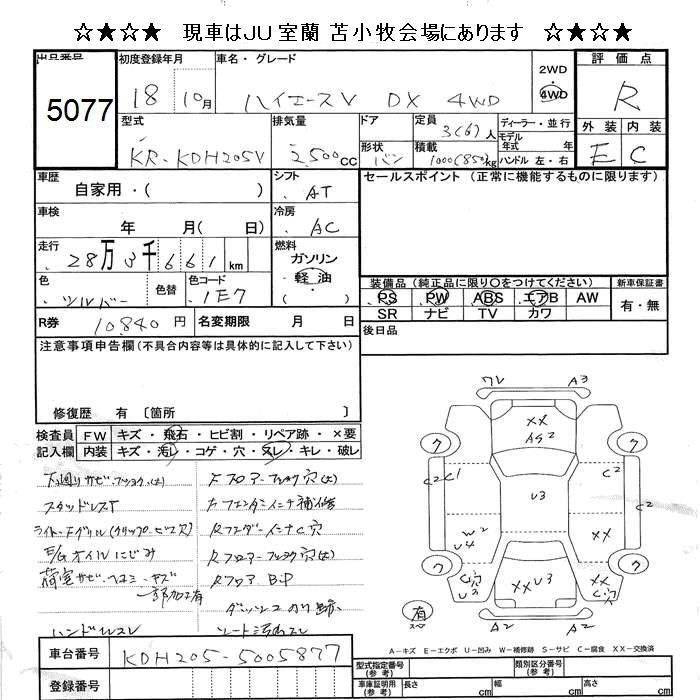 ☆★☆★ 現車はJU室蘭 苫小牧会場にあります ☆★☆★
出品番号
5077
初度登録年月
18 10月
車名・グレード
ハイエースV DX 4WD
2WD
4WD
評価点
R
外装 内装
E C
型式
KR-KDH205V
排気量
2,500cc
ドア
形状
バン
定員
3(6)人
積載
1000(850)kg
ディーラー・並行
モデル
年式 年
ハンドル 左・右
車歴
自家用・( )
シフト
AT
車検
年 月( 日)
冷房
AC
走行
28万3千661km
燃料
ガソリン
軽油
( )
色
シルバー
色替
色コード
1E7
R券
10,840円
名変期限 月 日
セールスポイント (正常に機能するものに限ります)
装備品(純正品に限り○をつけてください)
PS PW ABS エアB AW
SR ナビ TV カワ
新車保証書
有・無
後日品
注意事項申告欄(不具合内容等は具体的に記入して下さい)
修復歴 有〔箇所 〕
検査員
記入欄
FW キズ・飛石・ヒビ割・リペア跡・×要
内装 キズ・汚レ・コゲ・穴・スレ・キレ・破レ
下廻りサビ
スタッドレスT
E/Gオイルにじみ
荷室サビ・ヘコミ・キズ
一部加工有
ハンドルスレ
Fフロアー 穴(大)
Rフロアー
Rフロア
シート汚れスレ
7V A3
XX
AS2
ワ ワ
C2 C1 U3 C2
W2
U4
XX
ワ ワ
C穴
U3
XX U3
XX
C穴
A2 A2
有
スペア
A-キズ E-エクボ U-凹み W-補修跡 S-サビ C-腐食 XX-交換済
車台番号
KDH205-5005877
登録番号
型式指定番号
(参考)
類別区分番号
(参考)
車庫証明用
(参考)
長さ cm
幅 cm
高さ cm